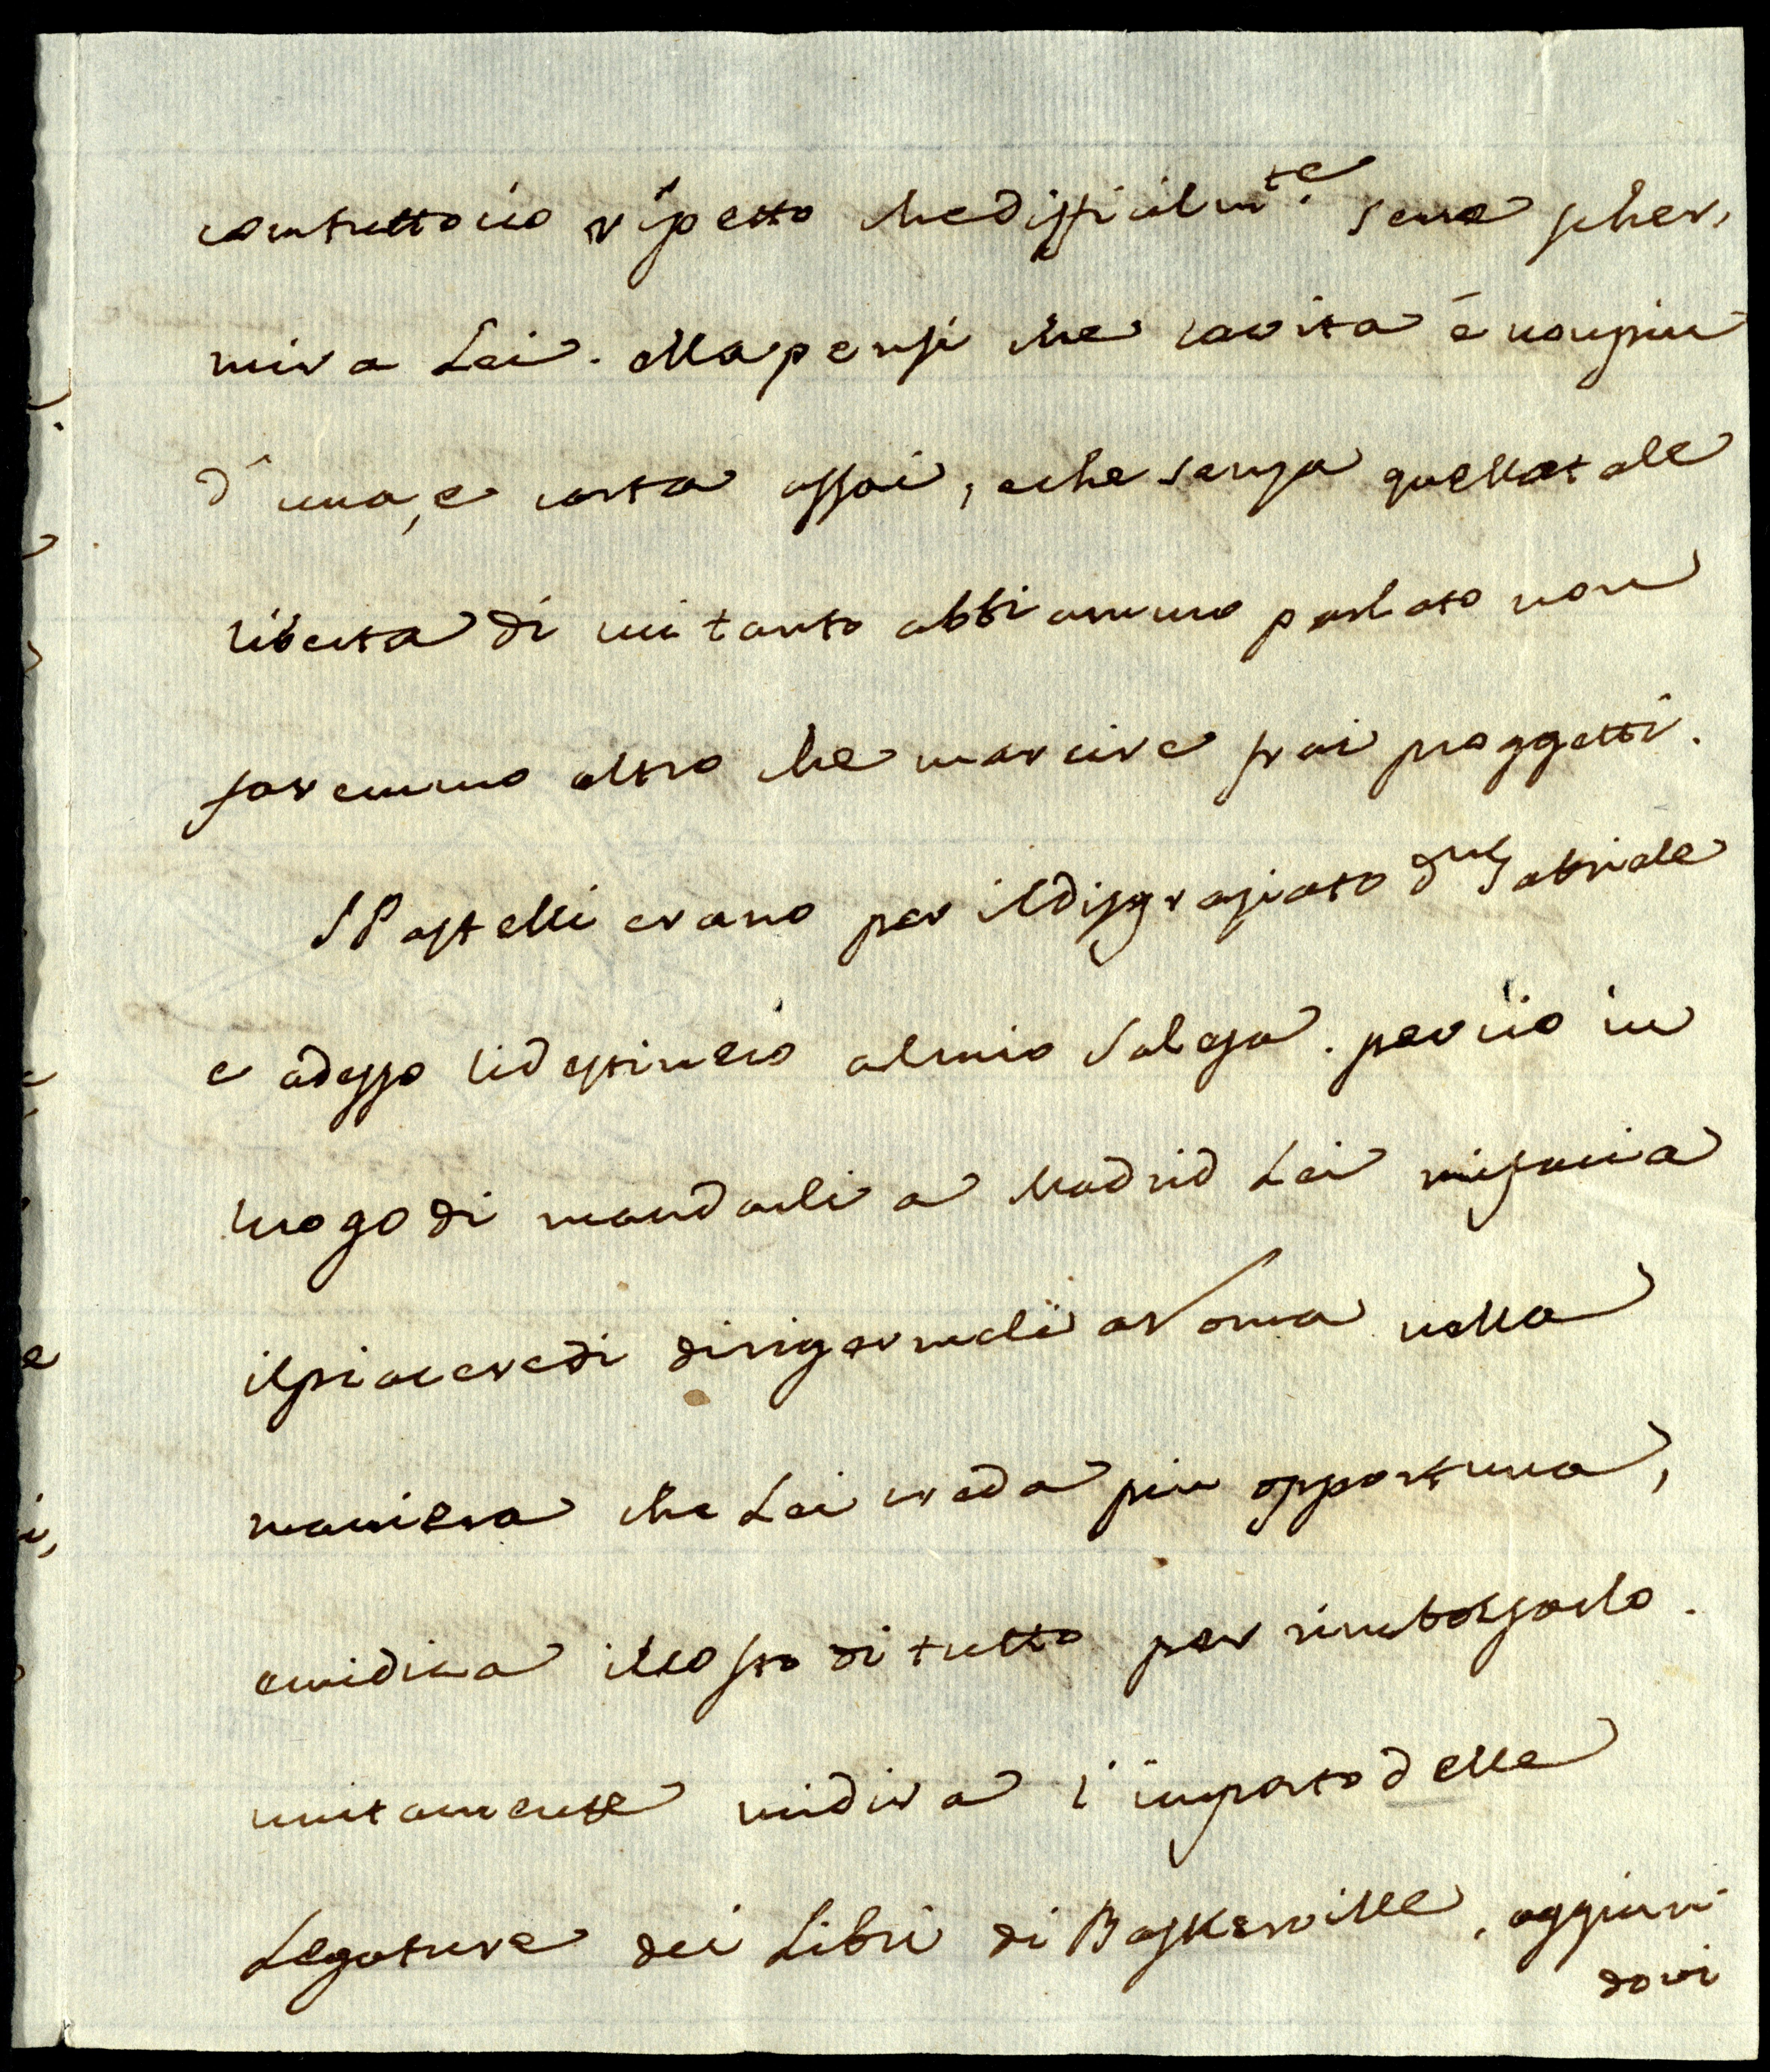 contuttocio rispetto che difficilmte. sene scher,
mira Lei. Ma pensi che la vita è non piu
d'una, e corta assai, e che senza quella tale
liberta di cui tanto abbiammo parlato non
faremmo altro che marcire frai proggetti.
I Pastelli erano per il disgraziato Gabriele
e adesso li destineio al mio Salesa. perciio in
luogo di mandarli a Madrid Lei mi faccia
il piacere di dirigermeli a Roma nella
maniera che Lei creda piu opportuna,
e mi dica il costo di tutto per rimborsarlo.
unitamente mi dira l'importo delle
Legature dei Libri di Baskerville, aggiun
dovi